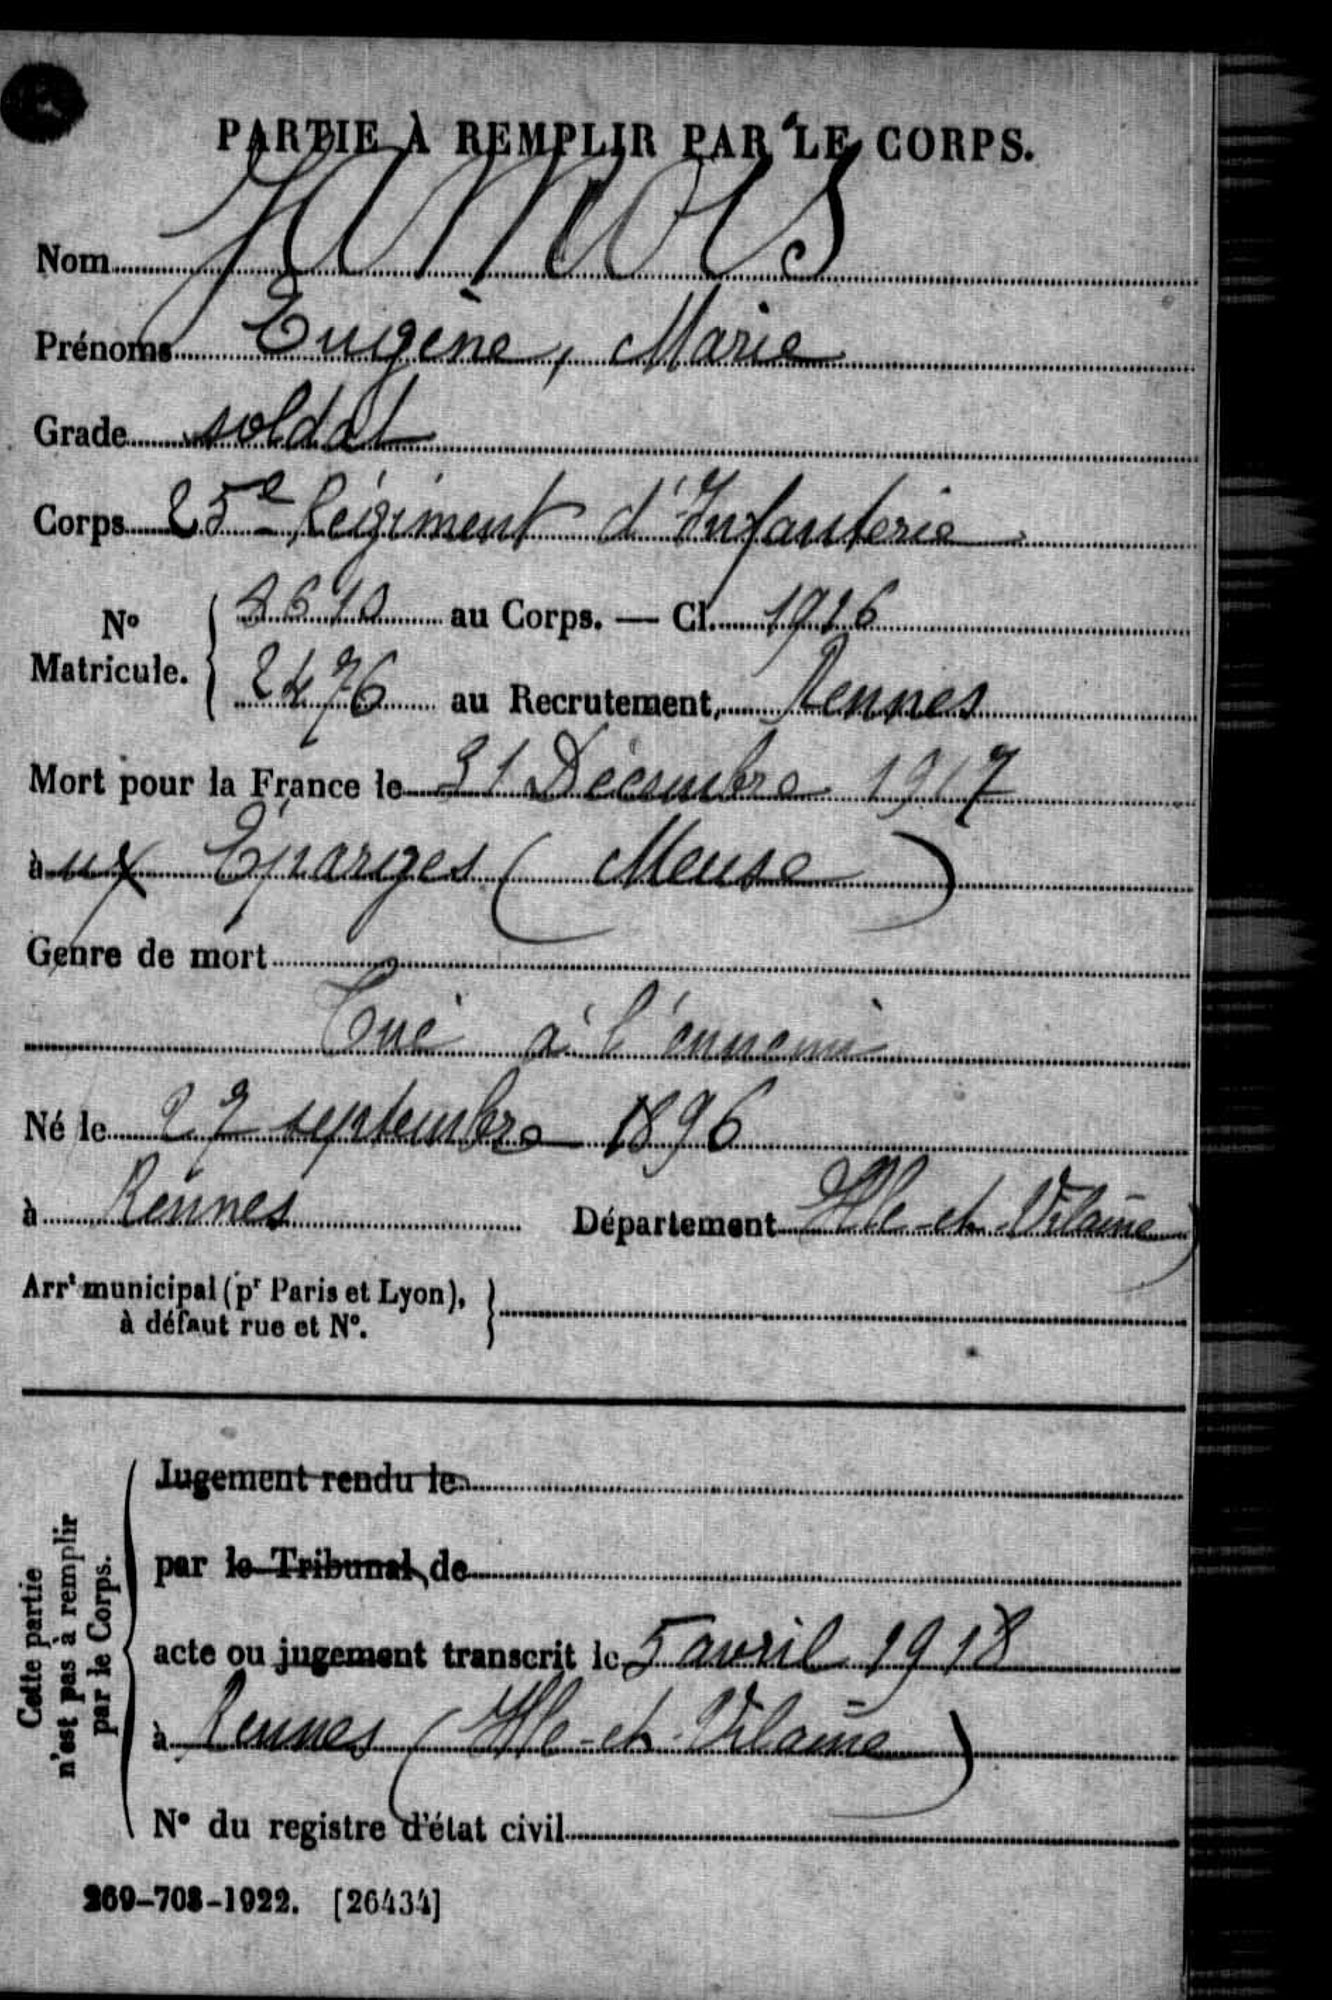 PARTIE À REMPLIR PAR LE CORPS.
Nom JAMOIS
Prénoms Eugène, Marie
Grade soldat
Corps 25e Régiment d'Infanterie
N° Matricule. au Corps. — Cl. 1916
2476 au Recrutement, Rennes
Mort pour la France le 31 Décembre 1917
aux Éparges (Meuse)
Genre de mort
Tué à l'ennemi
Né le 27 septembre 1896
à Rennes Département Ille-et-Vilaine
Arrt municipal (pr Paris et Lyon),
à défaut rue et N°.
Cette partie
n'est pas à remplir
par le Corps.
Jugement rendu le
par le Tribunal de
acte ou jugement transcrit le 5 avril 1918
à Rennes (Ille-et-Vilaine)
N° du registre d'état civil
269-708-1922. [26434]